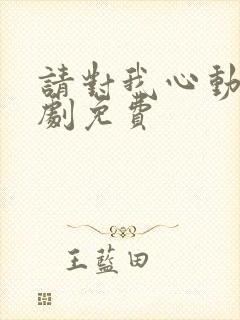 請對我心動
劇免費
王藍田